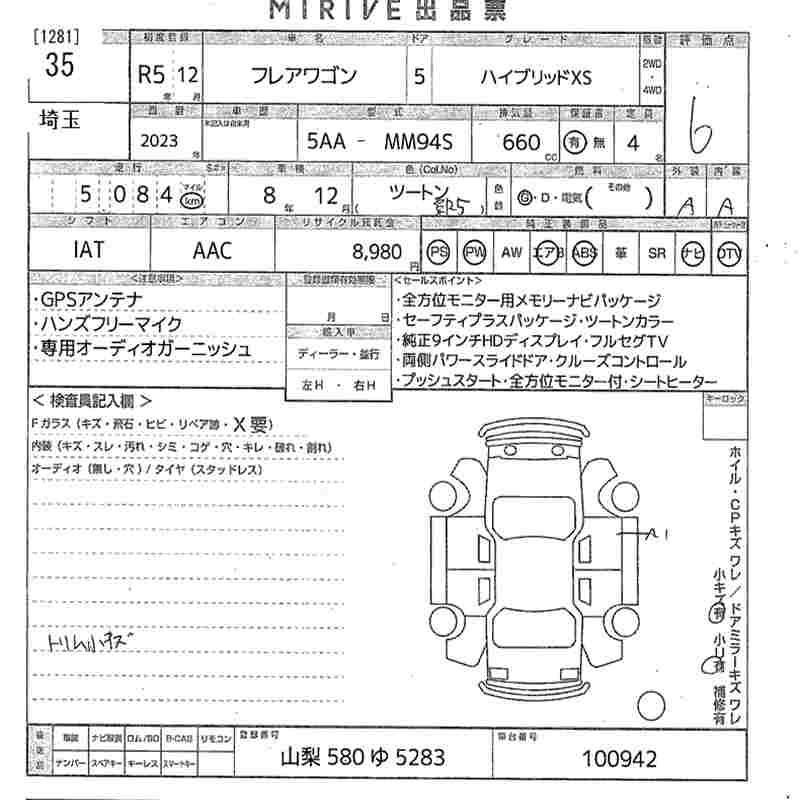 MIRIVE 出品票
[1281]
35
埼玉
初度登録 車名 ドア グレード 駆動 評価点
R5 12 フレアワゴン 5 ハイブリッドXS 2WD・4WD
年 月
6
車歴 型式 排気量 保証書 定員
2023 年 5AA - MM94S 660 CC 有 無 4 名
走行 車検 色(Col.No) 燃料 外装 内装
5084 マイル km 8年 12月 ツートン 色替 G・D・電気( その他 ) A A
シフト エアコン リサイクル預託金 純正装備品
IAT AAC 8,980円 PS PW AW エアB ABS 革 SR ナビ DTV
<注意事項>
・GPSアンテナ
・ハンズフリーマイク
・専用オーディオガーニッシュ
月 日
輸入車
ディーラー・並行
左H ・ 右H
<セールスポイント>
・全方位モニター用メモリーナビパッケージ
・セーフティプラスパッケージ・ツートンカラー
・純正9インチHDディスプレイ・フルセグTV
・両側パワースライドドア・クルーズコントロール
・プッシュスタート・全方位モニター付・シートヒーター
<検査員記入欄>
Fガラス(キズ・飛石・ヒビ・リペア跡・X要)
内装(キズ・スレ・汚れ・シミ・コゲ・穴・キレ・破れ・割れ)
オーディオ(無し・穴)/タイヤ(スタッドレス)
トリム小キズ
キーロック
A1
ホイル・CPキズ ワレ/ドアミラーキズ ワレ
小キズ有 小U有 補修有
後送品
取説 ナビ取説 ロム/SD B-CAS リモコン
ナンバー スペアキー キーレス スマートキー
登録番号
山梨 580 ゆ 5283
車台番号
100942